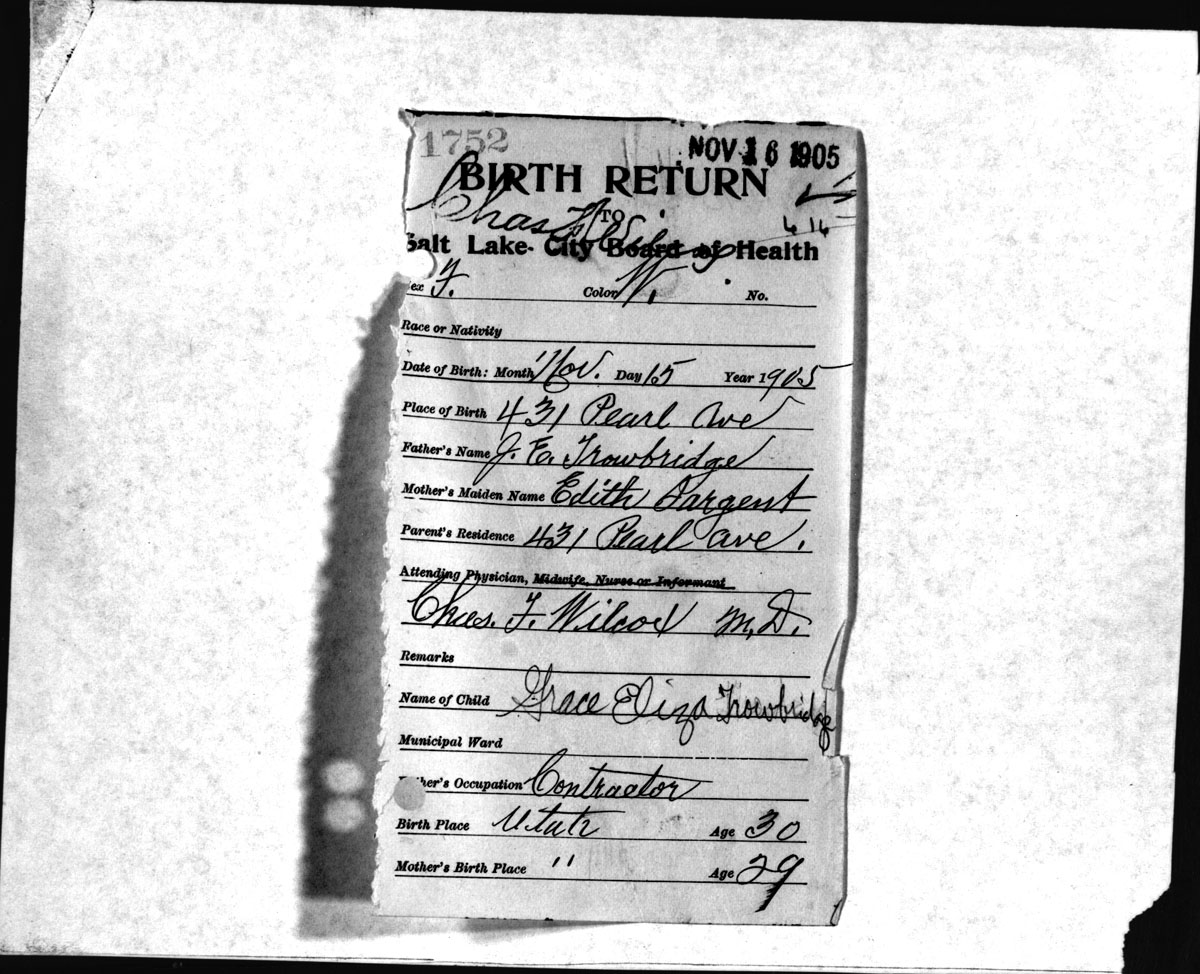 1752 NOV 16 1905
BIRTH RETURN
TO
4 14
Salt Lake City Board of Health
Sex F. Color W. No.
Race or Nativity
Date of Birth: Month Nov. Day 15 Year 1905
Place of Birth 431 Pearl Ave
Father's Name J. E. Trowbridge
Mother's Maiden Name Edith Sargent
Parent's Residence 431 Pearl ave.
Attending Physician, Midwife, Nurse or Informant
Chas. F. Wilcox M.D.
Remarks
Name of Child Grace Eliza Trowbridge
Municipal Ward
Father's Occupation Contractor
Birth Place Utah Age 30
Mother's Birth Place " Age 29